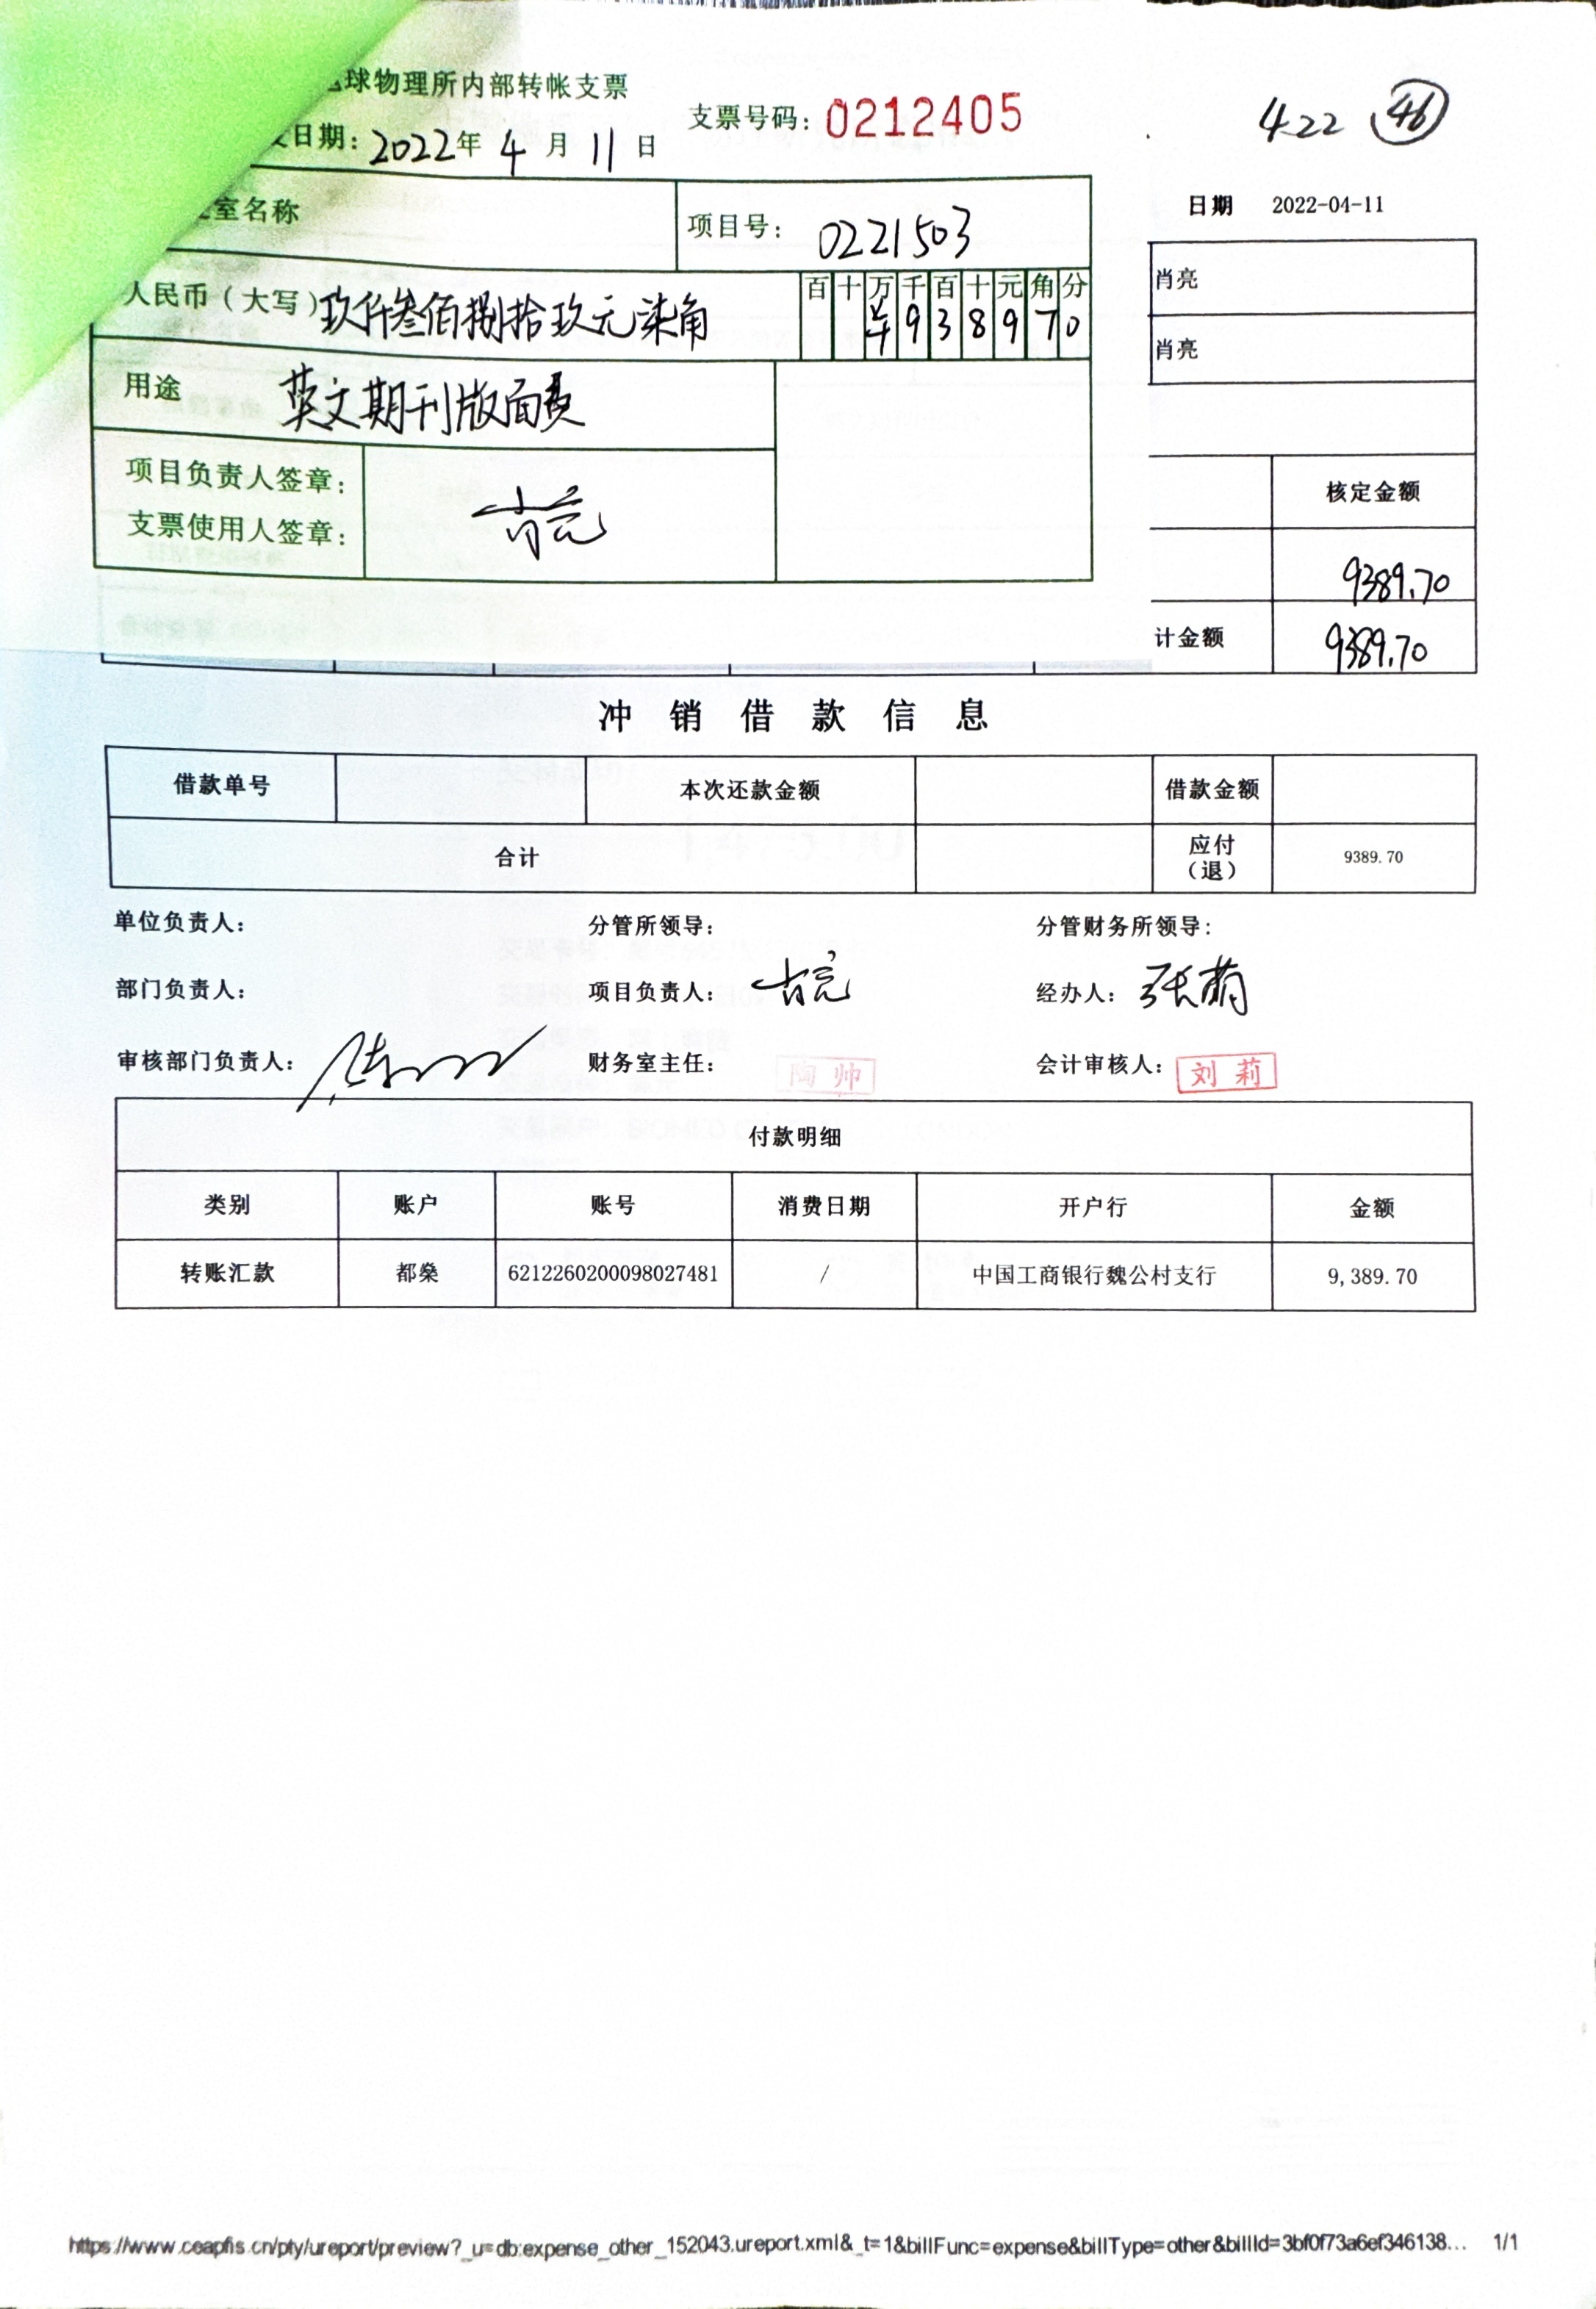 球物理所内部转帐支票
支票号码：0212405
422 ㊻
日期：2022年4月11日
日期 2022-04-11
室名称
项目号：0221503
肖亮
人民币（大写）玖仟叁佰捌拾玖元柒角
百十万千百十元角分
¥938970
肖亮
用途 英文期刊版面费
项目负责人签章：
支票使用人签章：
肖亮
核定金额
9389.70
计金额 9389.70
冲销借款信息
借款单号 本次还款金额 借款金额
合计 应付（退） 9389.70
单位负责人： 分管所领导： 分管财务所领导：
部门负责人： 项目负责人：肖亮 经办人：张萌
审核部门负责人： 财务室主任：陶帅 会计审核人：刘莉
付款明细
类别 账户 账号 消费日期 开户行 金额
转账汇款 都燊 6212260200098027481 / 中国工商银行魏公村支行 9,389.70
https://www.ceapfis.cn/pty/ureport/preview?_u=db:expense_other_152043.ureport.xml&_t=1&billFunc=expense&billType=other&billId=3bf0f73a6ef346138... 1/1